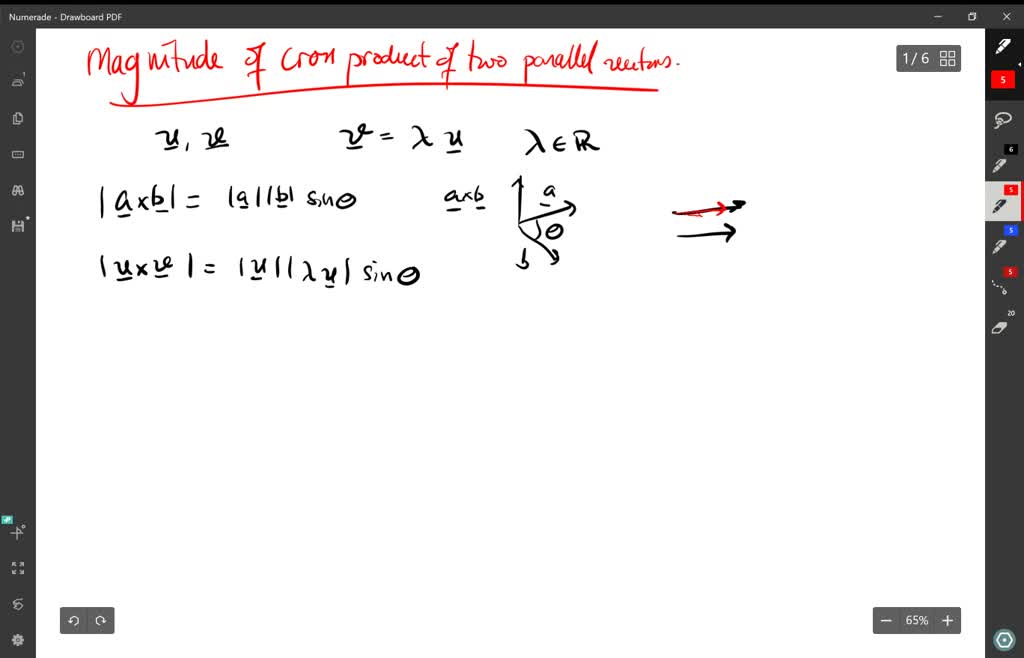 Numerade - Drawboard PDF
Magnitude of cross product of two parallel vectors.
1 / 6
5
u, v v = λ u λ ∈ ℝ
6
|a×b| = |a||b| sinθ a×b a
5
θ
5
b
|u×v| = |u||λu| sinθ
5
20
65%